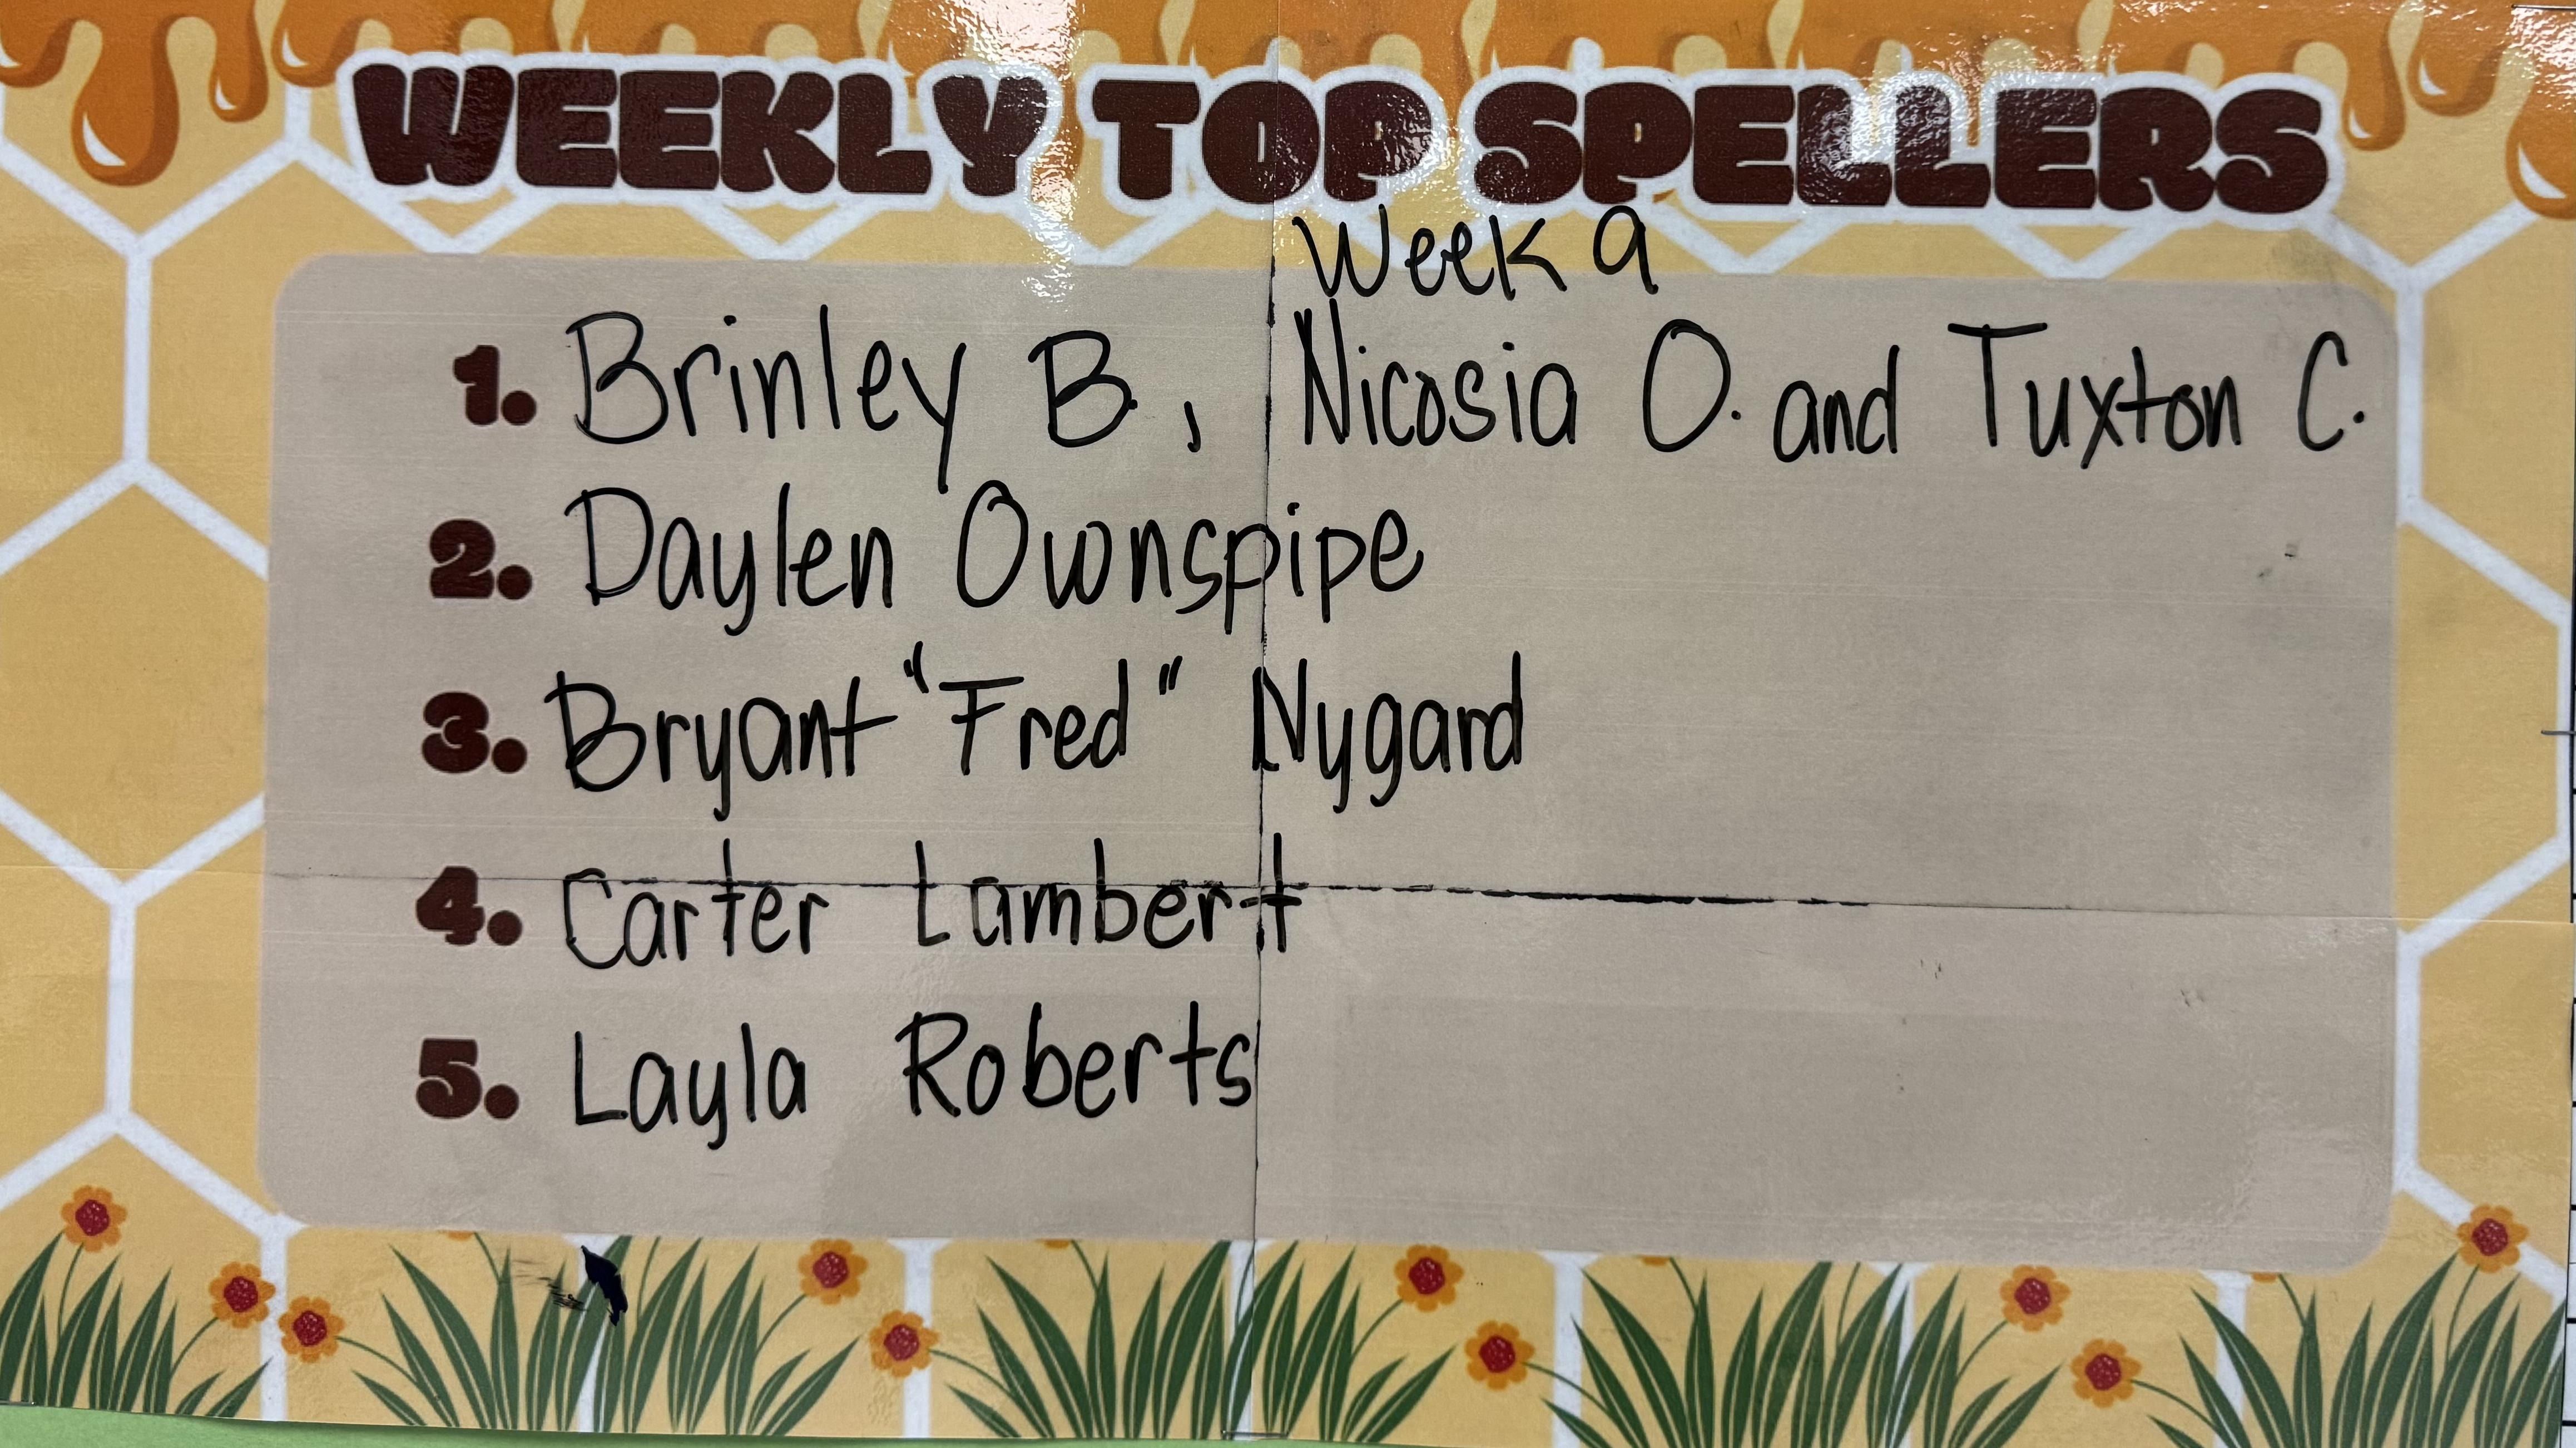 WEEKLY TOP SPELLERS
Week 9
1. Brinley B., Nicosia O. and Tuxton C.
2. Daylen Ownspipe
3. Bryant "Fred" Nygard
4. Carter Lambert
5. Layla Roberts